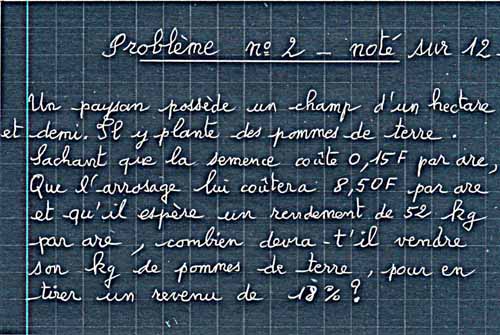 Problème nº 2 - noté sur 12-
Un paysan possède un champ d'un hectare
et demi. Il y plante des pommes de terre.
Sachant que la semence coûte 0,15F par are,
Que l'arrosage lui coûtera 8,50F par are
et qu'il espère un rendement de 52 kg
par are, combien devra-t'il vendre
son kg de pommes de terre, pour en
tirer un revenu de 18%?